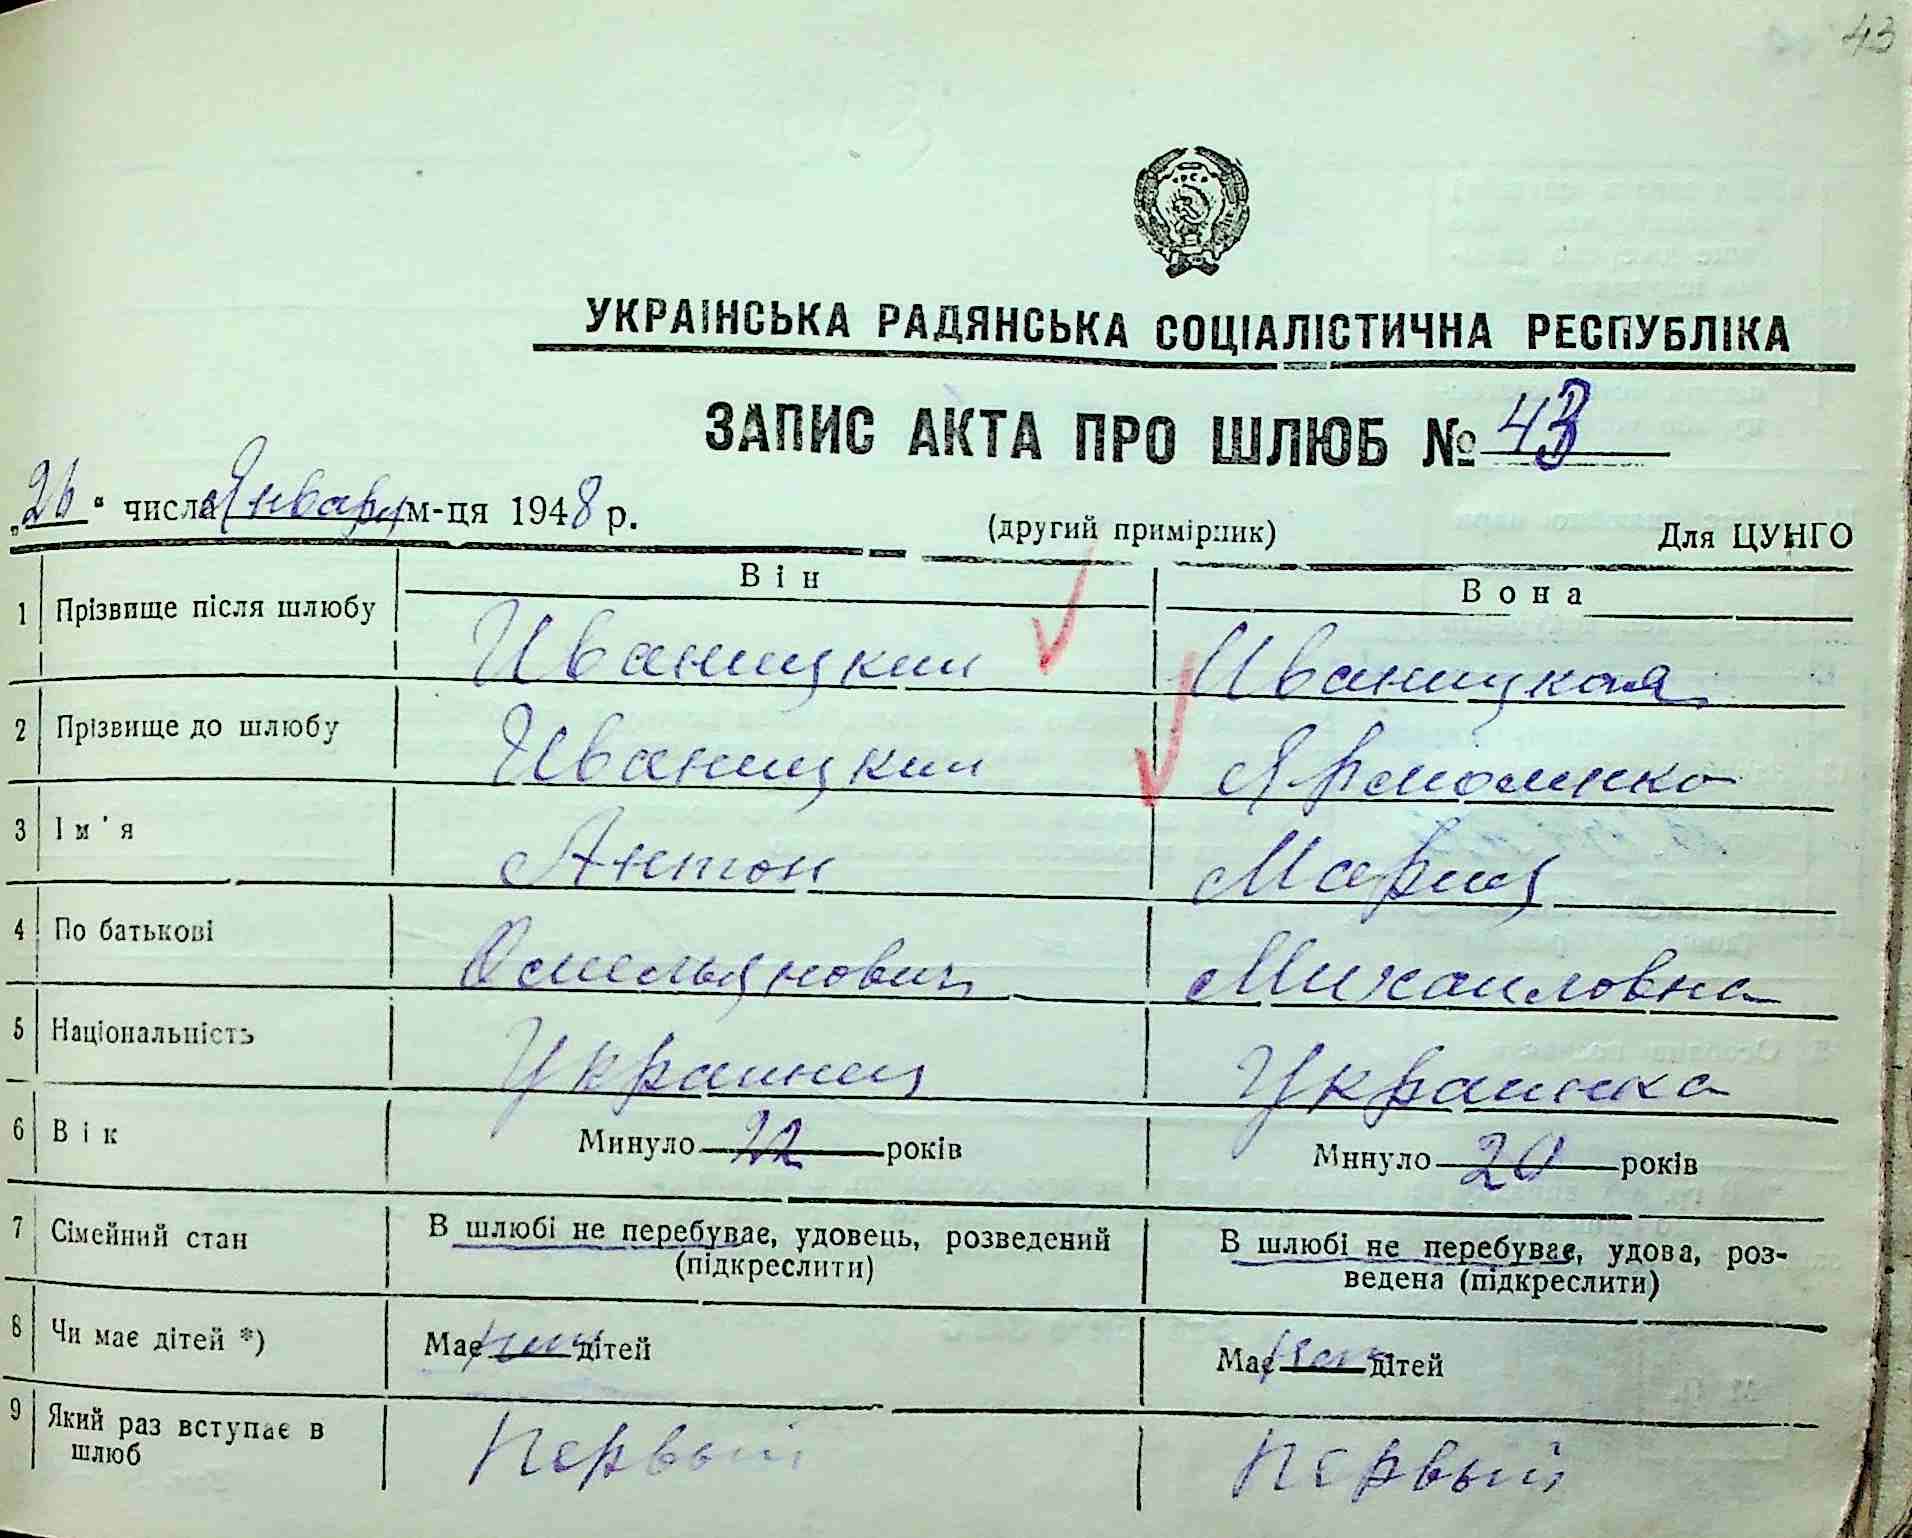 43
УКРАІНСЬКА РАДЯНСЬКА СОЦІАЛІСТИЧНА РЕСПУБЛІКА
ЗАПИС АКТА ПРО ШЛЮБ № 43
„26“ числа Января м-ця 1948 р.
(другий примірник) Для ЦУНГО
Він Вона
1 Прізвище після шлюбу Иваницкий Иваницкая
2 Прізвище до шлюбу Иваницкий Ярмоленко
3 Ім'я Антон Мария
4 По батькові Омельянович Михаиловна
5 Національність Украинец Украинка
6 Вік Минуло 22 років Минуло 20 років
7 Сімейний стан В шлюбі не перебуває, удовець, розведений В шлюбі не перебуває, удова, роз-
(підкреслити) ведена (підкреслити)
8 Чи має дітей *) Має нет дітей Має нет дітей
9 Який раз вступає в Первый Первый
шлюб